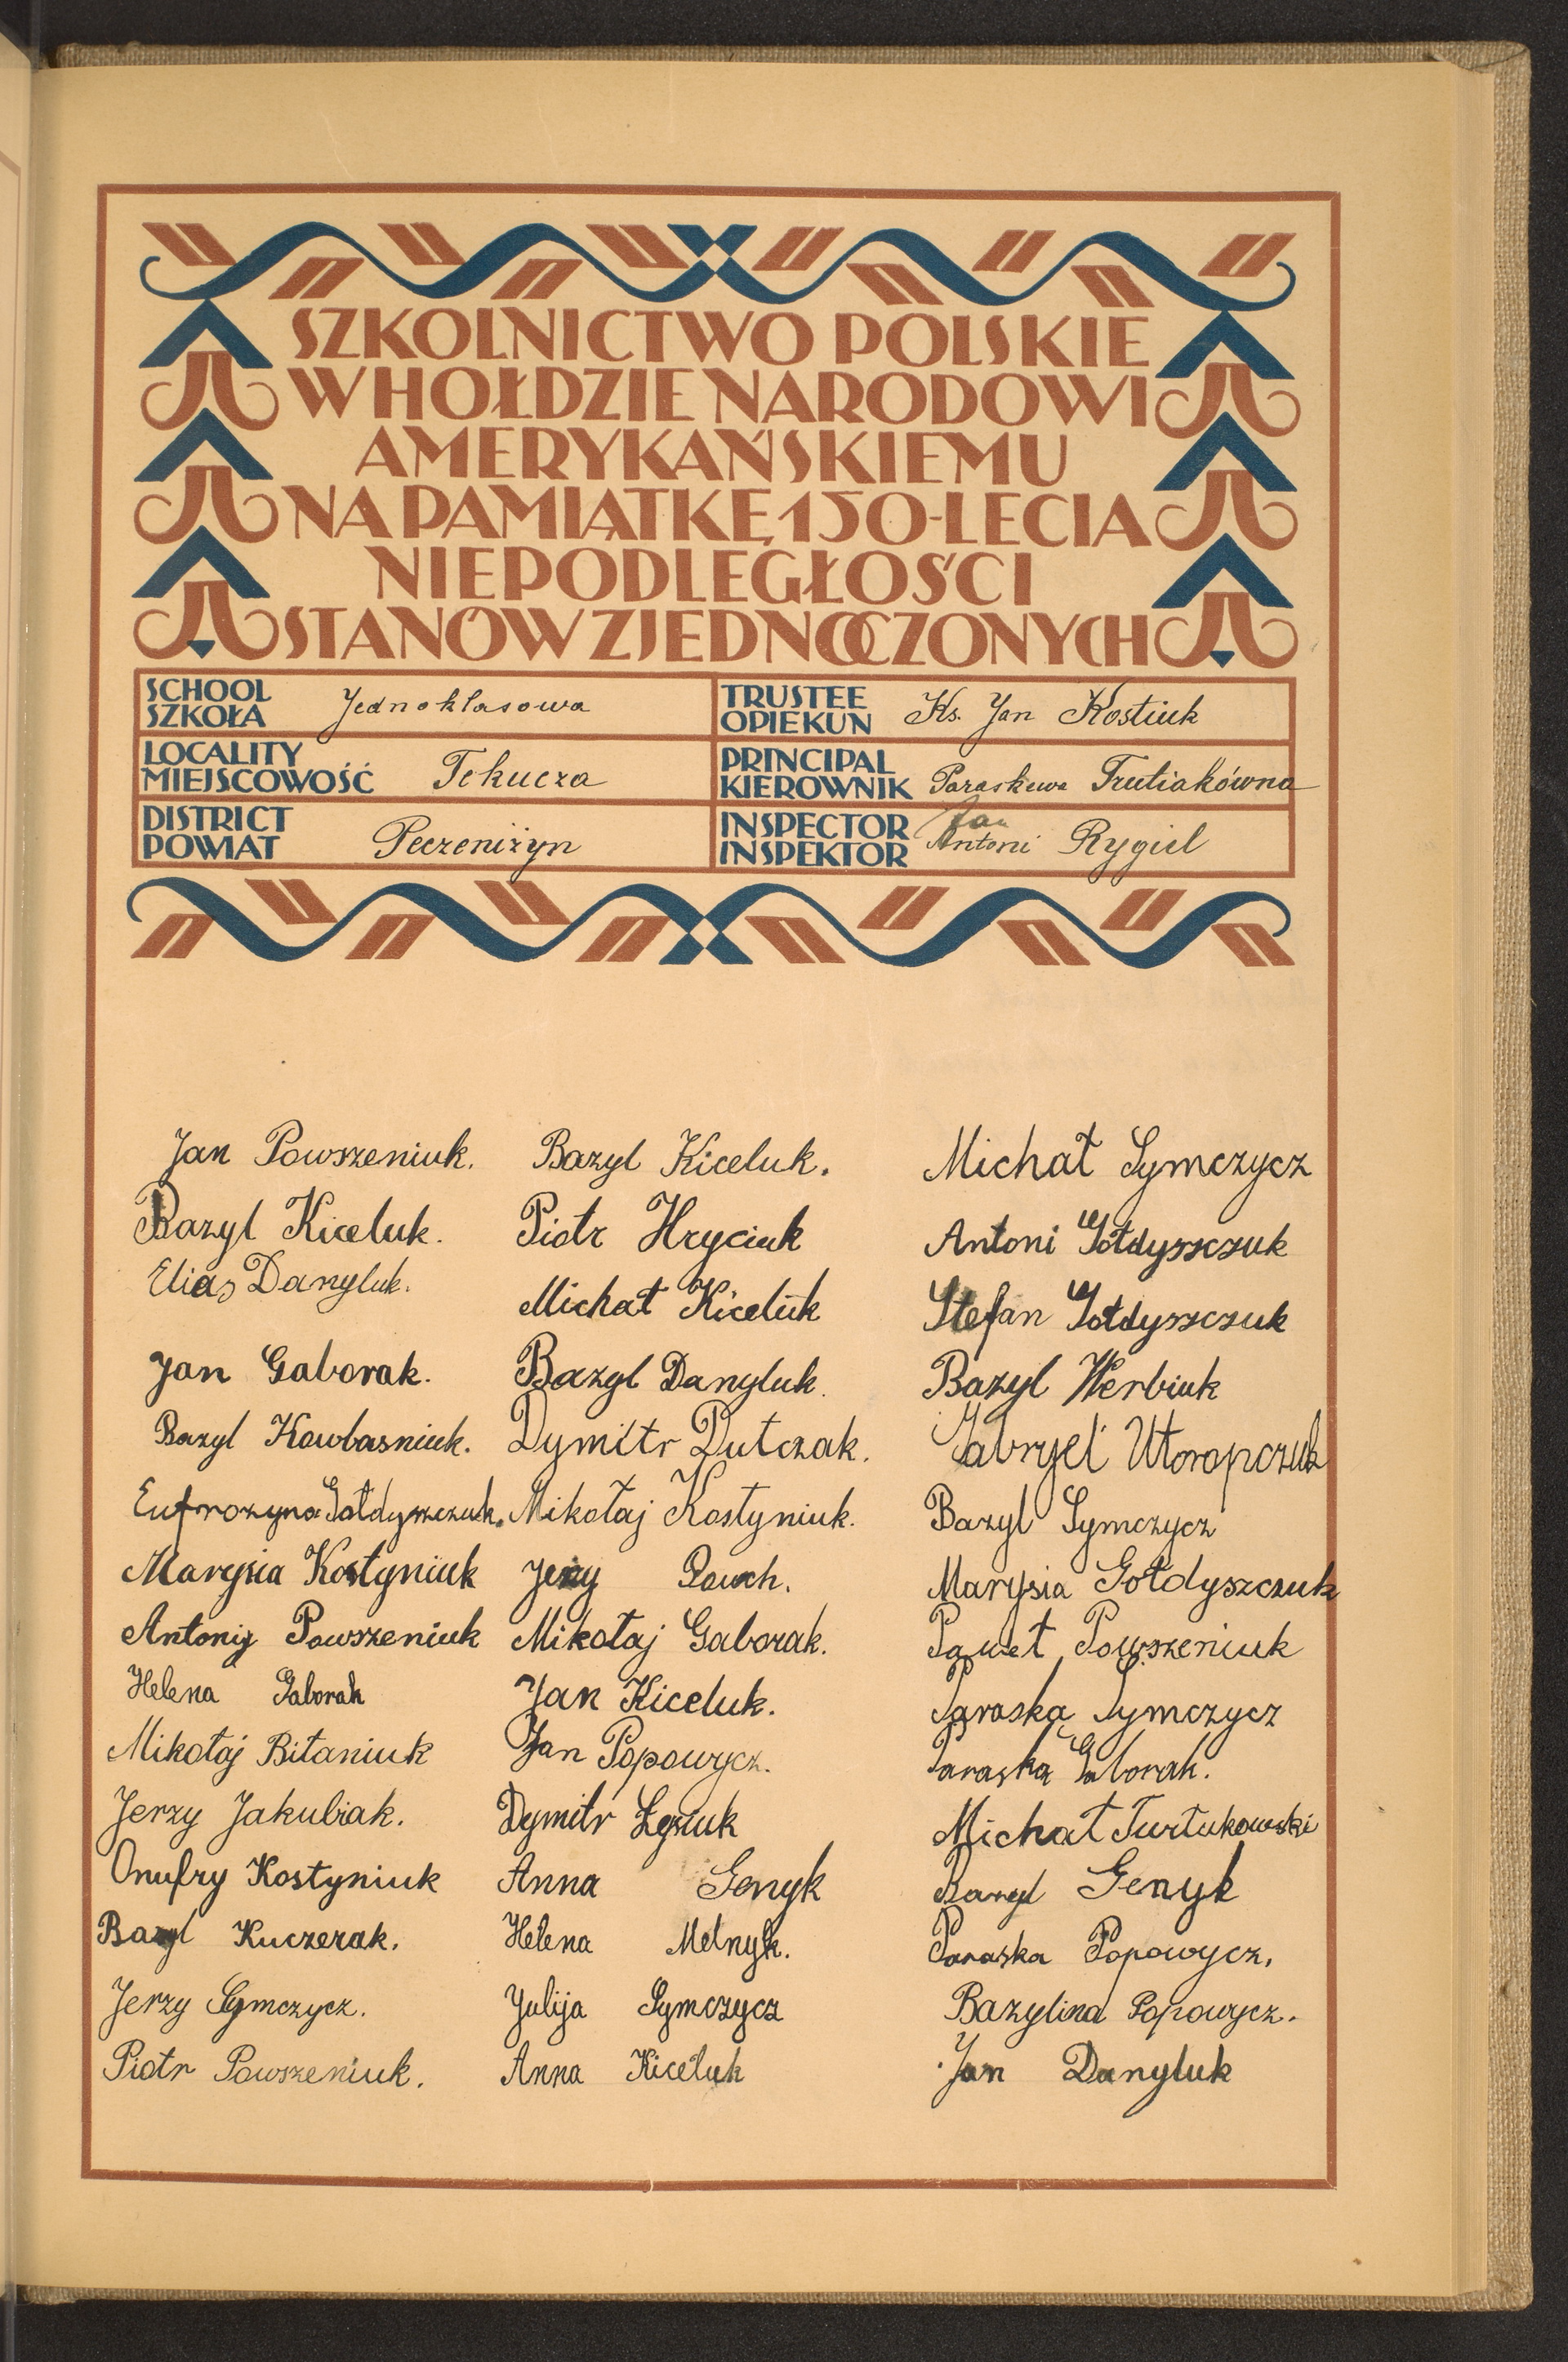 SZKOLNICTWO POLSKIE
W HOŁDZIE NARODOWI
AMERYKAŃSKIEMU
NA PAMIĄTKĘ 150-LECIA
NIEPODLEGŁOŚCI
STANÓW ZJEDNOCZONYCH
SCHOOL
SZKOŁA Jednoklasowa
TRUSTEE
OPIEKUN Ks. Jan Kostiuk
LOCALITY
MIEJSCOWOŚĆ Tekucza
PRINCIPAL
KIEROWNIK Paraskewa Trutiakówna
DISTRICT
POWIAT Peczeniżyn
INSPECTOR Jan
INSPEKTOR Antoni Rygiel
Jan Powszeniuk.
Bazyl Kiceluk.
Elias Danyluk.
Jan Gaborak.
Bazyl Kowbasniuk.
Eufrozyna Gołdyszczuk.
Marysia Kostyniuk
Antonij Powszeniuk
Helena Gaborak
Mikołaj Bitaniuk
Jerzy Jakubiak.
Onufry Kostyniuk
Bazyl Kuczerak.
Jerzy Symczycz.
Piotr Powszeniuk.
Bazyl Kiceluk.
Piotr Hryciuk
Michał Kiceluk
Bazyl Danyluk.
Dymitr Dutczak.
Mikołaj Kostyniuk.
Jerzy
Mikołaj Gaborak.
Jan Kiceluk.
Jan Popowycz.
Dymitr Łesiuk
Anna Genyk
Helena Melnyk.
Julija Symczycz
Anna Kiceluk
Michał Symczycz
Antoni Gołdyszczuk
Stefan Gołdyszczuk
Bazyl Werbiuk
Gabryel Utoropczuk
Bazyl Symczycz
Marysia Gołdyszczuk
Paweł Powszeniuk
Paraska Symczycz
Paraska Gaborak.
Michał Turłukowski
Bazyl Genyk
Paraska Popowycz.
Bazylina Popowycz.
Jan Danyluk